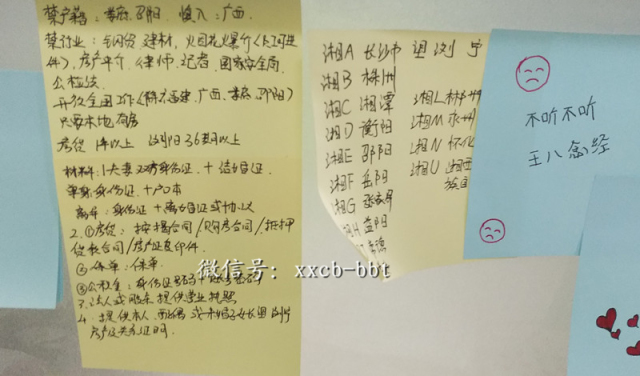 禁户籍：娄底.邵阳. 慎入：广西
禁行业：钢贸 建材, 火因花火暴介
件), 房产中介. 律师. 记者. 国家安全局.
公检法
开放全国工作(除福建.广西.娄底.邵阳)
只要本地有房
房贷 1年以上 36期以上
材料：1.夫妻双方身份证. + 结婚证.
单身：身份证 + 户口本
离异：身份证 + 离婚证或协议
2. ①房贷：按揭合同/购房合同/抵押
贷款合同/房产证复印件.
②保单：保单
③公积金：身份证号码+
3. 法人或股东提供营业执照
4. 提供本人.配偶 或未婚子女长沙
房产及关系证明.
湘A 长沙市 望 浏 宁
湘B 株州
湘C 湘潭
湘D 衡阳
湘E 邵阳
湘F 岳阳
湘G 张家界
湘H 益阳
常德
湘L 郴州
湘M 永州
湘N 怀化
湘U 湘西
不听不听
王八念经
微信号：xxcb-bbt